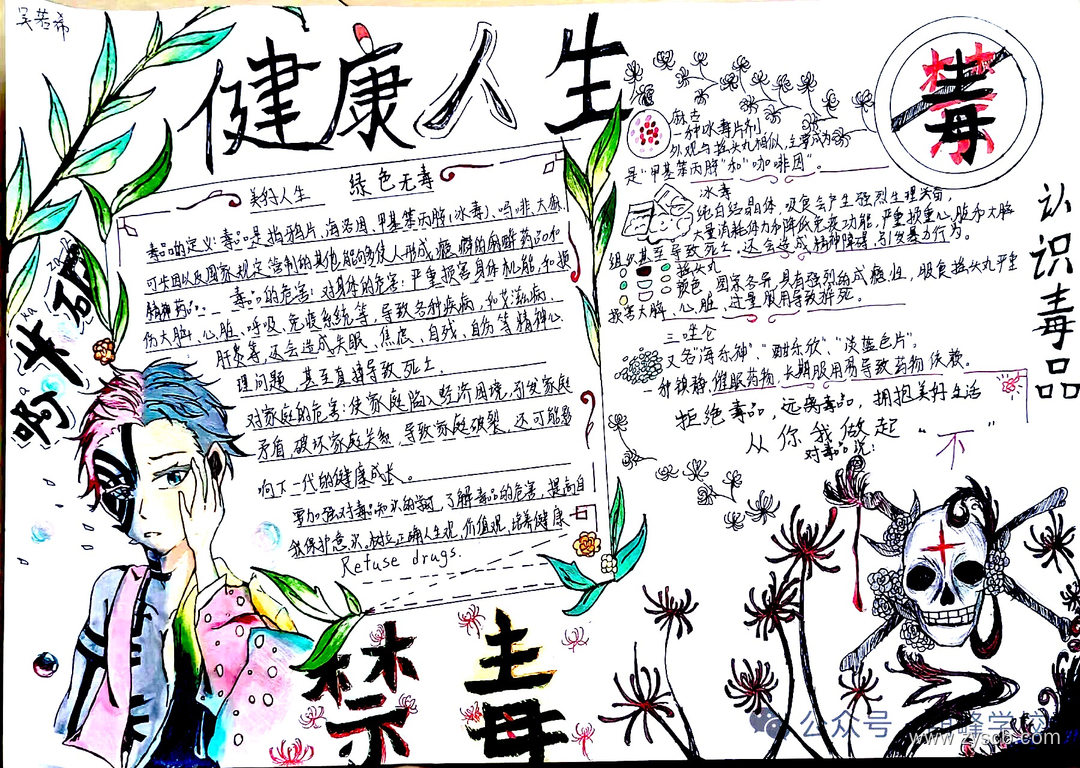 吴若希
健康人生
美好人生 绿色无毒
毒品的定义:毒品是指鸦片、海洛因、甲基苯丙胺(冰毒)、吗啡、大麻、
可卡因以及国家规定管制的其他能够使人形成瘾癖的麻醉药品和
精神药品. 毒品的危害:对身体的危害:严重损害身体机能,和损
伤大脑、心脏、呼吸、免疫系统等,导致各种疾病,和艾滋病、
肝炎等,还会造成失眠、焦虑、自残、自伤等精神心
理问题,甚至直接导致死亡.
对家庭的危害:使家庭陷入经济困境,引发家庭
矛盾,破坏家庭关系,导致家庭破裂,还可能影
响下一代的健康成长.
要加强对毒品知识的学习,了解毒品的危害,提高自
我保护意识,树立正确人生观,价值观,培养健康
Refuse drugs.
啊
禁毒
禁毒
麻古
一种冰毒片剂
外观与摇头丸相似,主要成为
是"甲基苯丙胺"和"咖啡因"。
冰毒
纯白结晶体,吸食会产生强烈生理兴奋,
大量消耗体力和降低免疫功能,严重损重心脏和大脑
组织甚至导致死亡.还会造成精神障碍,引发暴力行为。
摇头丸
颜色,图案各异,具有强烈的成瘾性,服食摇头丸严重
损害大脑、心脏、过量服用导致猝死。
三唑仑
又名"海乐神"、"酣乐欣"、"淡蓝色片",
一种镇静,催眠药物,长期服用易导致药物依赖。
拒绝毒品,远离毒品,拥抱美好生活
从你我做起
对毒品说:
"不"
认识毒品
公众号
www.zyscb.com